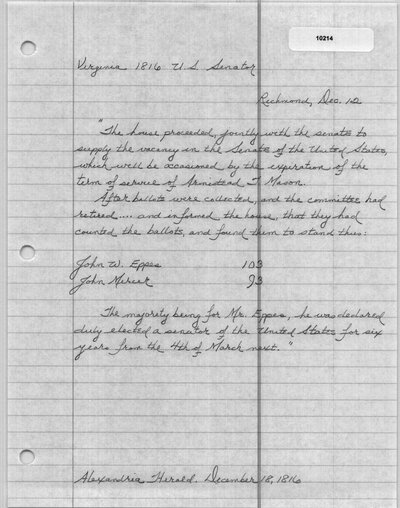 10214
Virginia 1816 U.S. Senator
Richmond, Dec. 12
"The house proceeded, jointly with the senate to
supply the vacancy in the Senate of the United States,
which will be occasioned by the expiration of the
term of service of Armestead T. Mason.
After ballots were collected, and the committee had
retired.... and informed the house, that they had
counted the ballots, and found them to stand thus:
John W. Eppes 103
John Mercer 93
The majority being for Mr. Eppes, he was declared
duly elected a senator of the United States for six
years from the 4th of March next."
Alexandria Herald. December 18, 1816